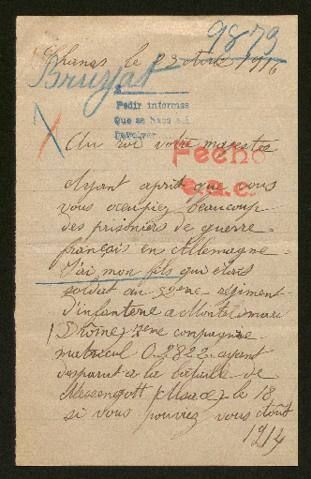 9873
Chanas le 23 1916
Bruyat
Pedir informes
Que se hace así
Devolver
X
Au roi votre majestée
Fecho
e.a.c.
Ayant aprit que vous
vous occupiez beaucoup
des prisoniers de guerre
français en Allemagne
J'ai mon fils qui étais
soldat au 52ème régiment
d'infanterie a Montelimart
(Drôme) 7ème compagnie
matricul 0.2822 ayant
desparut a la bataille de
Messengott (Alsace) le 18
si vous pouviez vous Août
1914